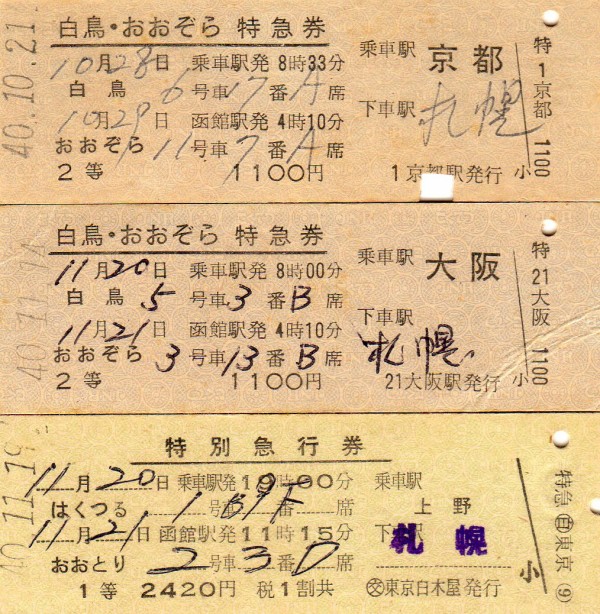 白鳥・おおぞら 特急券
10月28日 乗車駅発 8時33分
白鳥 6号車17番A席
10月29日 函館駅発 4時10分
おおぞら 11号車7番A席
2等 1100円
乗車駅 京都
下車駅 札幌
1京都駅発行
特1京都 1100
小
40.10.21
白鳥・おおぞら 特急券
11月20日 乗車駅発 8時00分
白鳥 5号車3番B席
11月21日 函館駅発 4時10分
おおぞら 3号車13番B席
2等 1100円
乗車駅 大阪
下車駅 札幌
21大阪駅発行
特21大阪 1100
小
40.11.14
特別急行券
11月20日 乗車駅発19時00分
はくつる 1 B9下 席
11月21日 函館駅発11時15分
おおとり 2号車3番D席
1等 2420円 税1割共
乗車駅 上野
下車駅 札幌
小
㊋東京日本屋発行
特急 ㊐東京 (9)
40.11.19